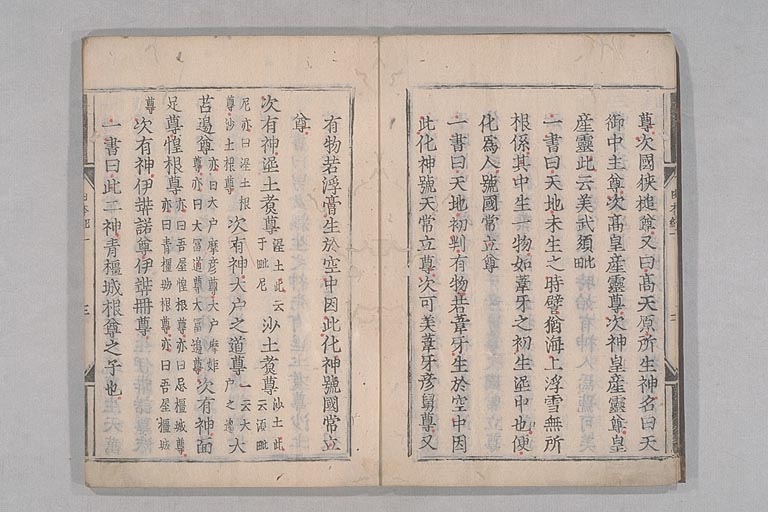 尊次國狹槌尊又曰髙天原所生神名曰天
御中主尊次髙皇産靈尊次神皇産靈尊皇
産靈此云美武須毗
一書曰天地未生之時譬猶海上浮雪無所
根係其中生一物如葦牙之初生埿中也便
化爲人號國常立尊
一書曰天地初判有物若葦牙生於空中因
此化神號天常立尊次可美葦牙彦舅尊又
有物若浮膏生於空中因此化神號國常立
尊
次有神埿土煑尊埿土此云于毗尼沙土煑尊沙土此云湏毗
尼亦曰埿土根尊沙土根尊次有神大戸之道尊一云大戸之邊大
苫邊尊亦曰大戸摩彦尊大戸摩姫尊亦曰大冨道尊大冨邊尊次有神面
足尊惶根尊亦曰吾屋惶根尊亦曰忌橿城尊亦曰青橿城根尊亦曰吾屋橿城
尊
次有神伊弉諾尊伊弉冊尊
一書曰此二神青橿城根尊之子也
日本紀一
二
三